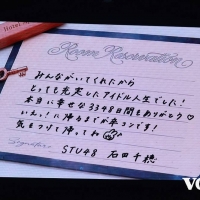 Room Reservation
みんながいてくれたから
とっても充実したアイドル人生でした!
本当に幸せな3348日間をありがとう♡
いえ!に帰るまでが卒コンです!
気をつけて帰ってね
Signature
STU48 石田千穂